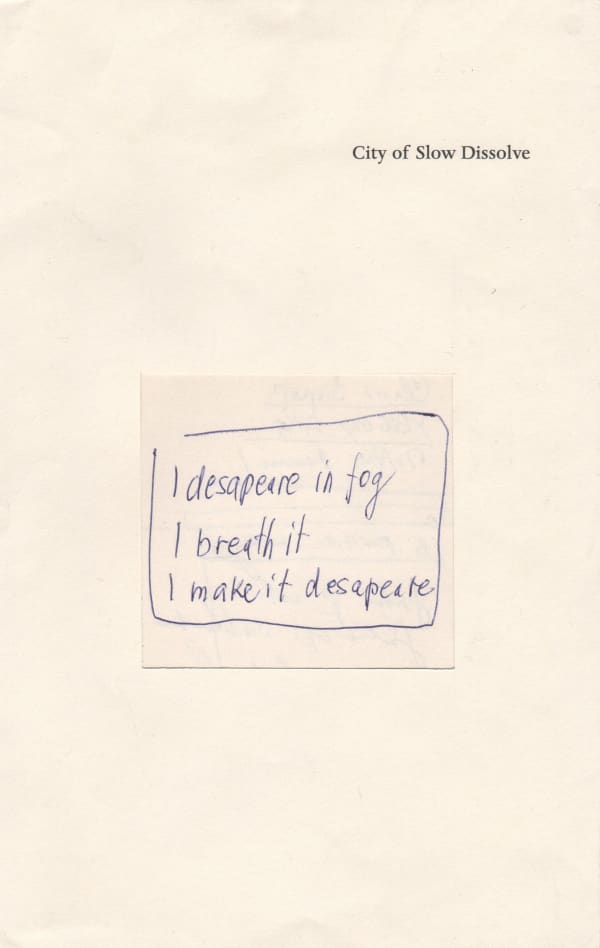 City of Slow Dissolve
I desapeare in fog
I breath it
I make it desapeare